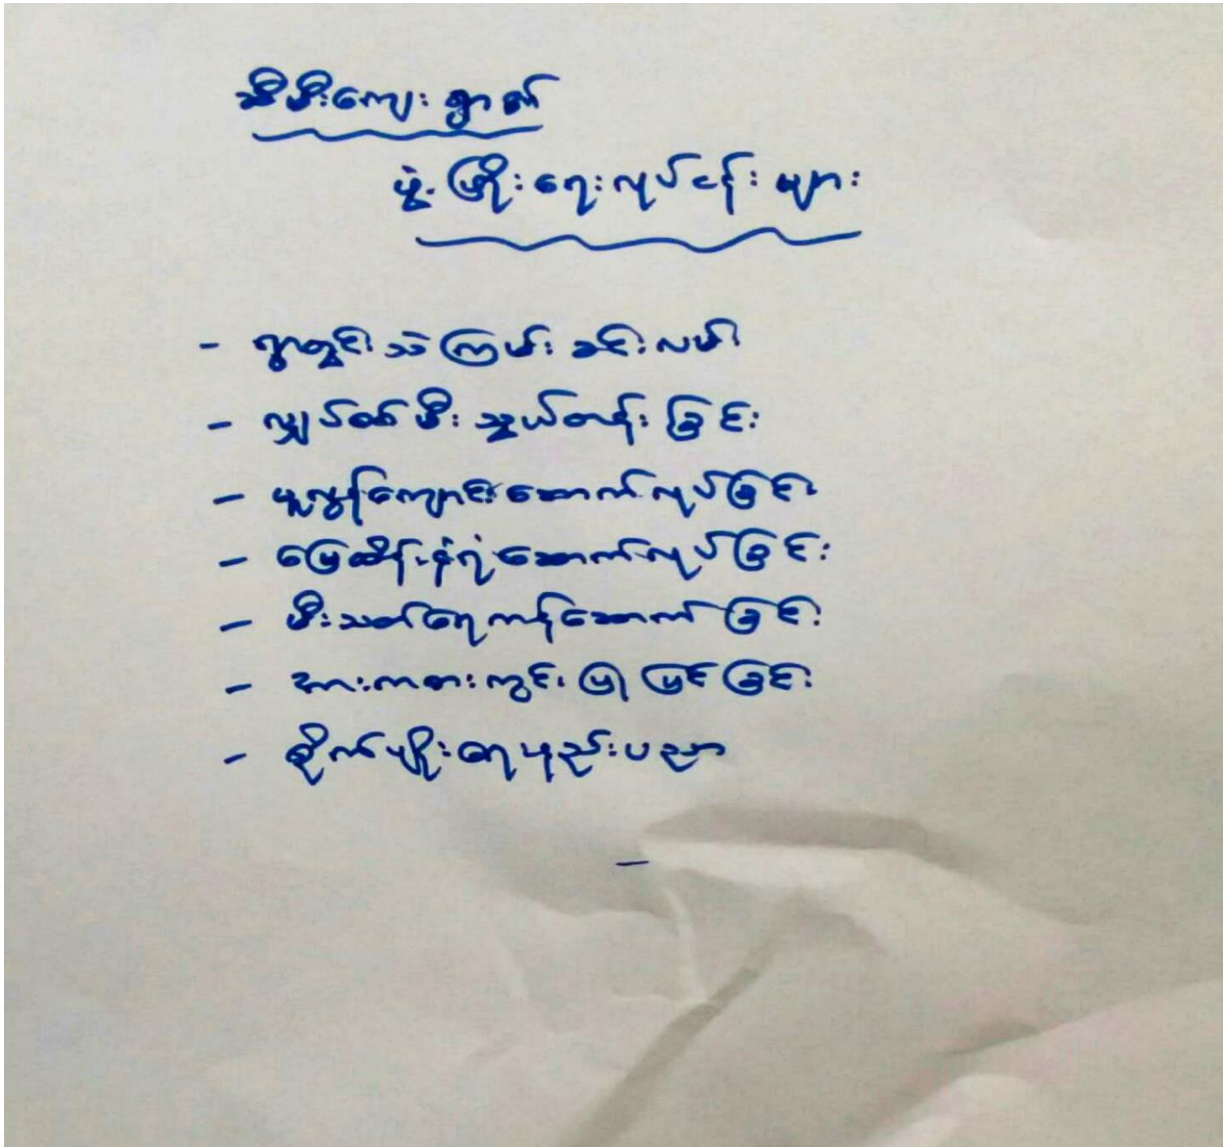 ဆီမီးကျေးရွာ၏
ဖွံ့ဖြိုးရေးလုပ်ငန်းများ
- ရွာတွင်းသဲကြမ်းခင်းလမ်း
- လျှပ်စစ်မီးသွယ်တန်းခြင်း
- မူလွန်ကျောင်းဆောက်လုပ်ခြင်း
- မြေထိန်းနံရံဆောက်လုပ်ခြင်း
- မီးသတ်ရေကန်ဆောက်ခြင်း
- အားကစားကွင်းပြုပြင်ခြင်း
- စိုက်ပျိုးရေးနည်းပညာ